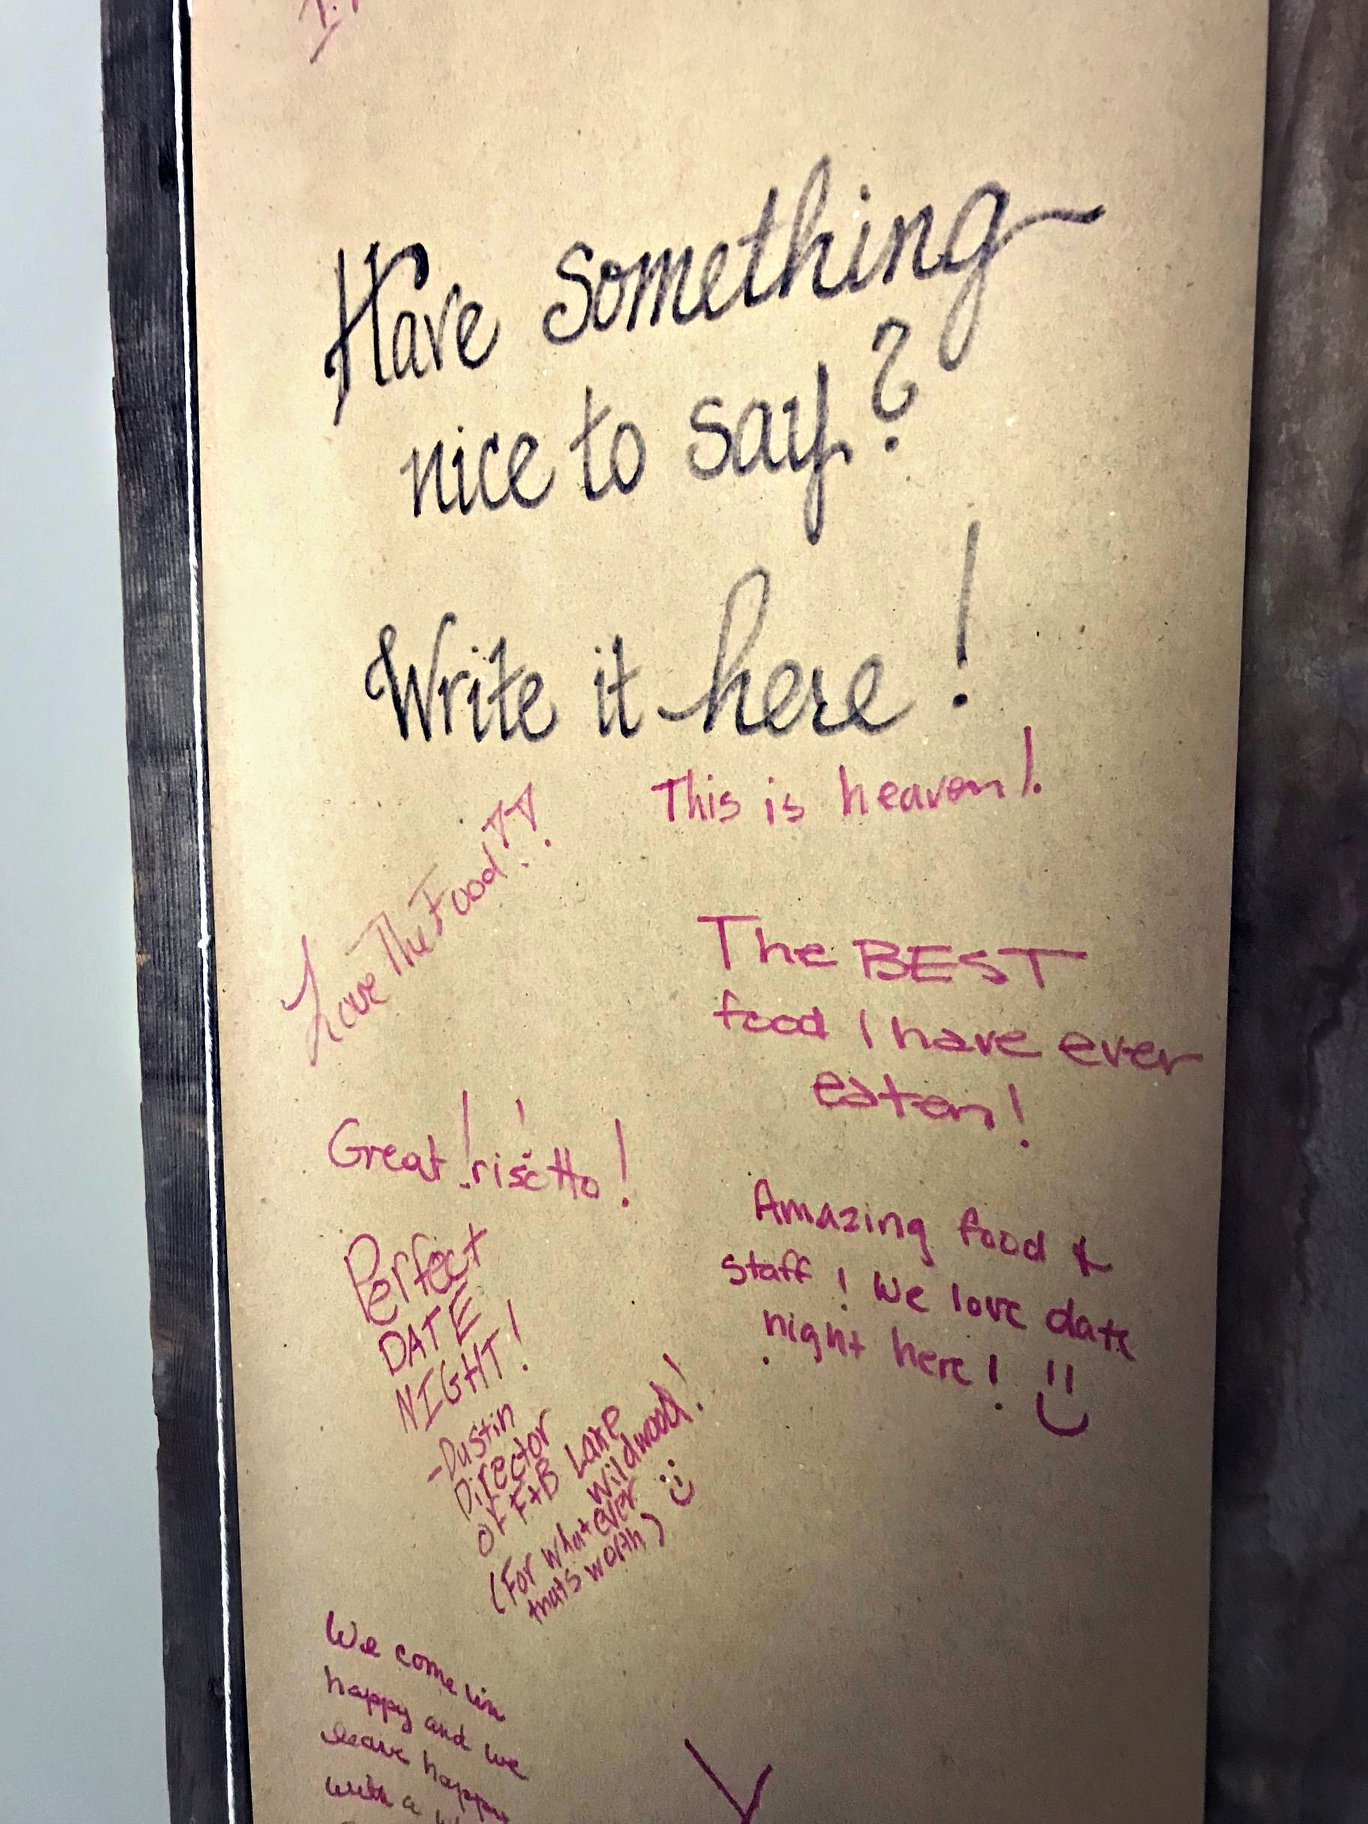 Have something
nice to say?
Write it here!
This is heaven!
Love The Food!!
The BEST
food I have ever
eaten!
Great! risotto!
Amazing food &
staff! We love date
night here! :)
Perfect
DATE
NIGHT!
-Dustin
Director
of F+B Lake
Wildwood!
(For whatever
thats worth) :)
We come in
happy and we
leave happy
with a